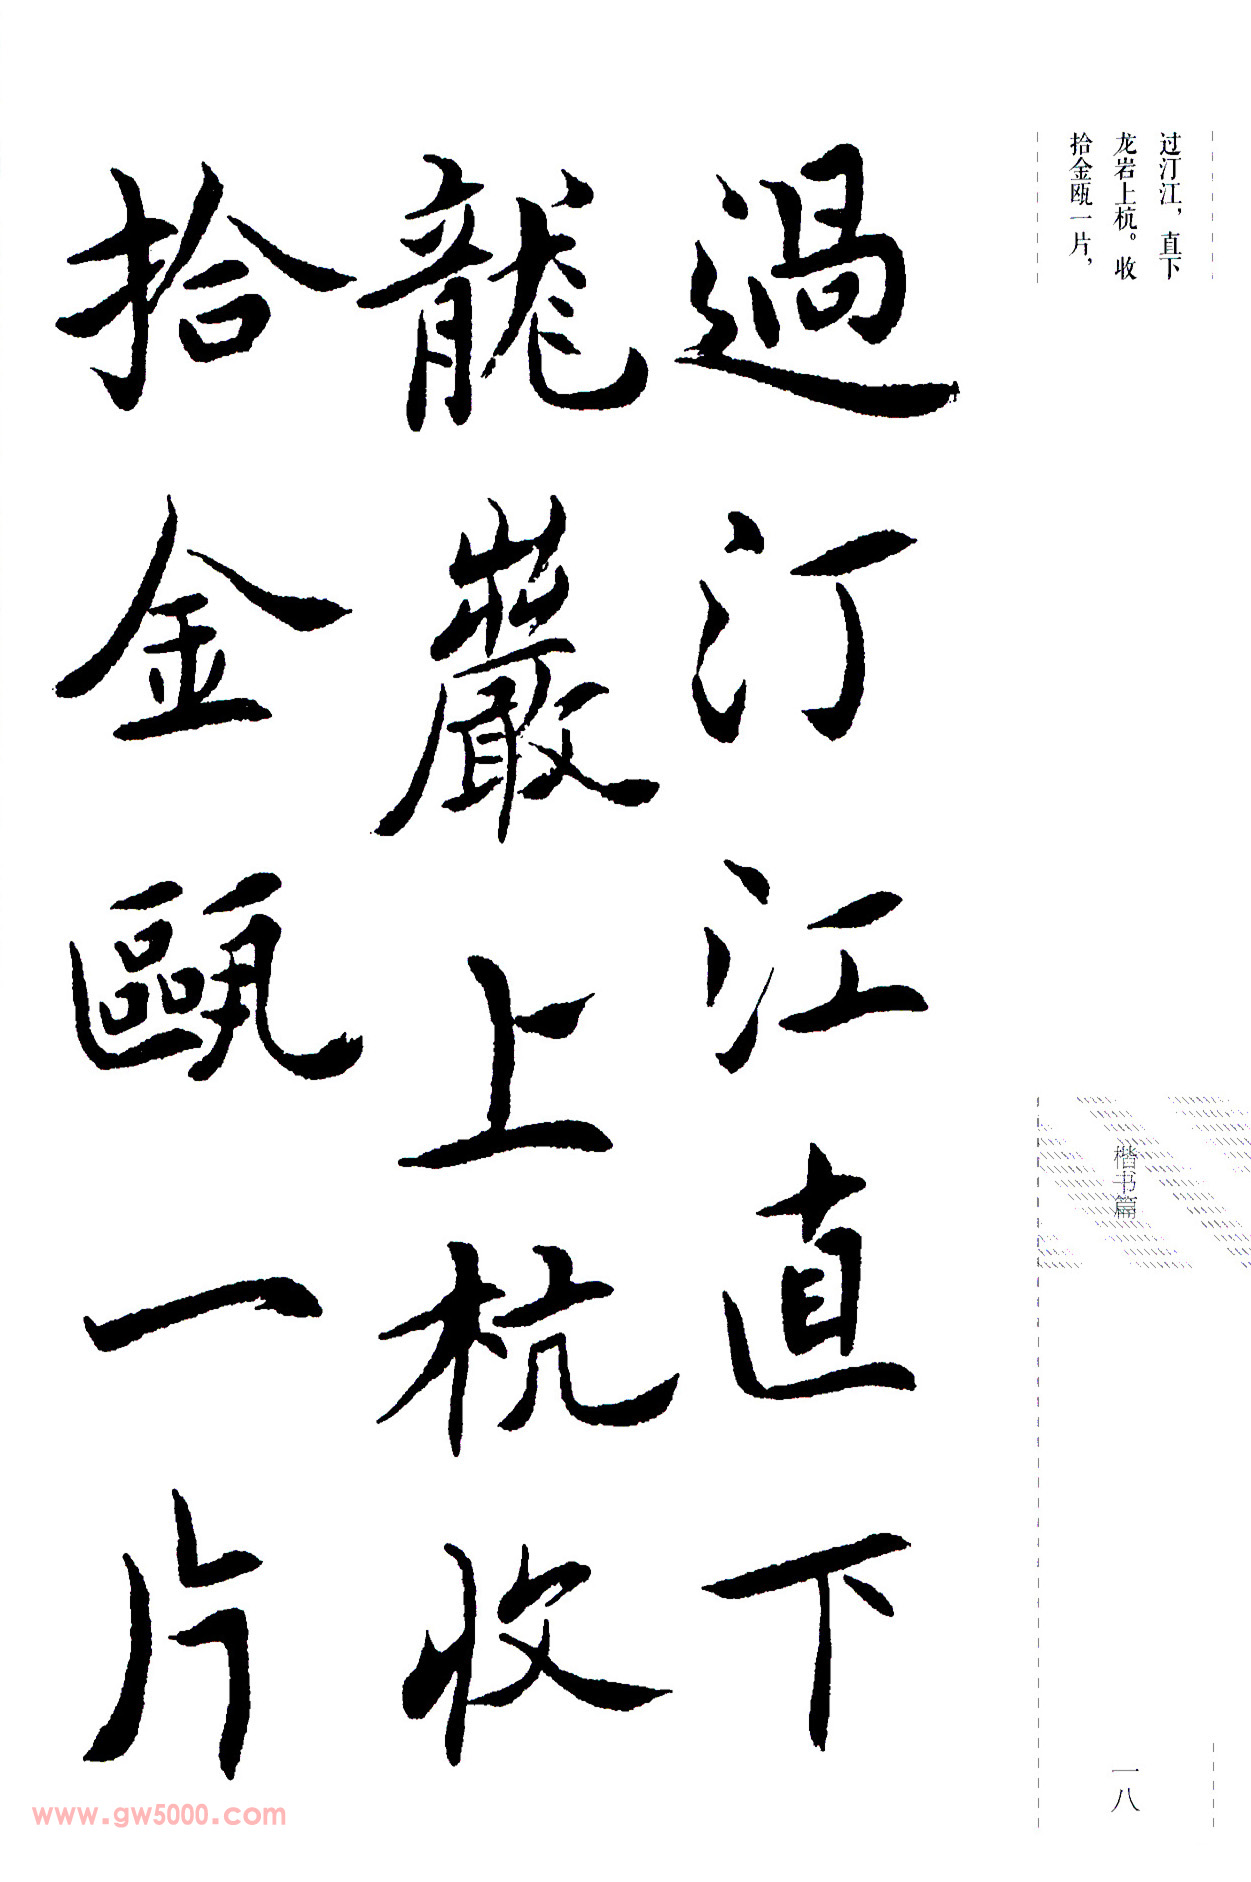 过汀江，直下
龙岩上杭。收
拾金瓯一片，
過汀江直下
龍巖上杭收
拾金甌一片
楷书篇
一八
www.gw5000.com